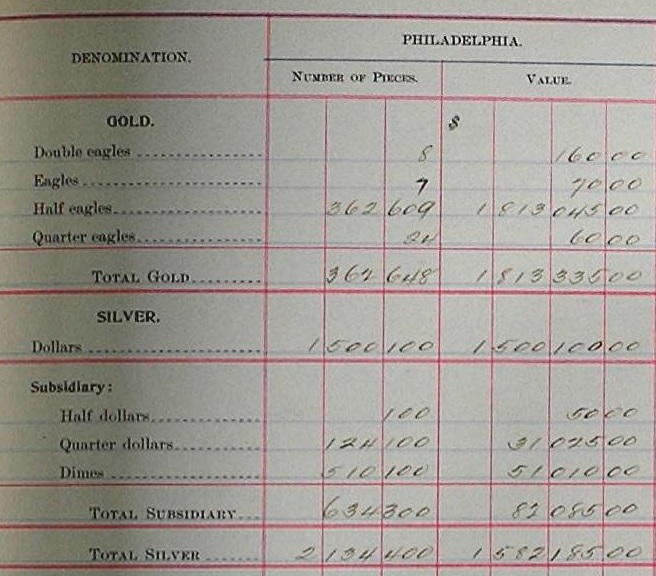 PHILADELPHIA.
DENOMINATION.
NUMBER OF PIECES. VALUE.
GOLD. $
Double eagles 8 160 00
Eagles 7 70 00
Half eagles 362 609 1 813 045 00
Quarter eagles 24 60 00
TOTAL GOLD 362 648 1 813 335 00
SILVER.
Dollars 1 500 100 1 500 100 00
Subsidiary:
Half dollars 100 50 00
Quarter dollars 124 100 31 025 00
Dimes 510 100 51 010 00
TOTAL SUBSIDIARY 634 300 82 085 00
TOTAL SILVER 2 134 400 1 582 185 00